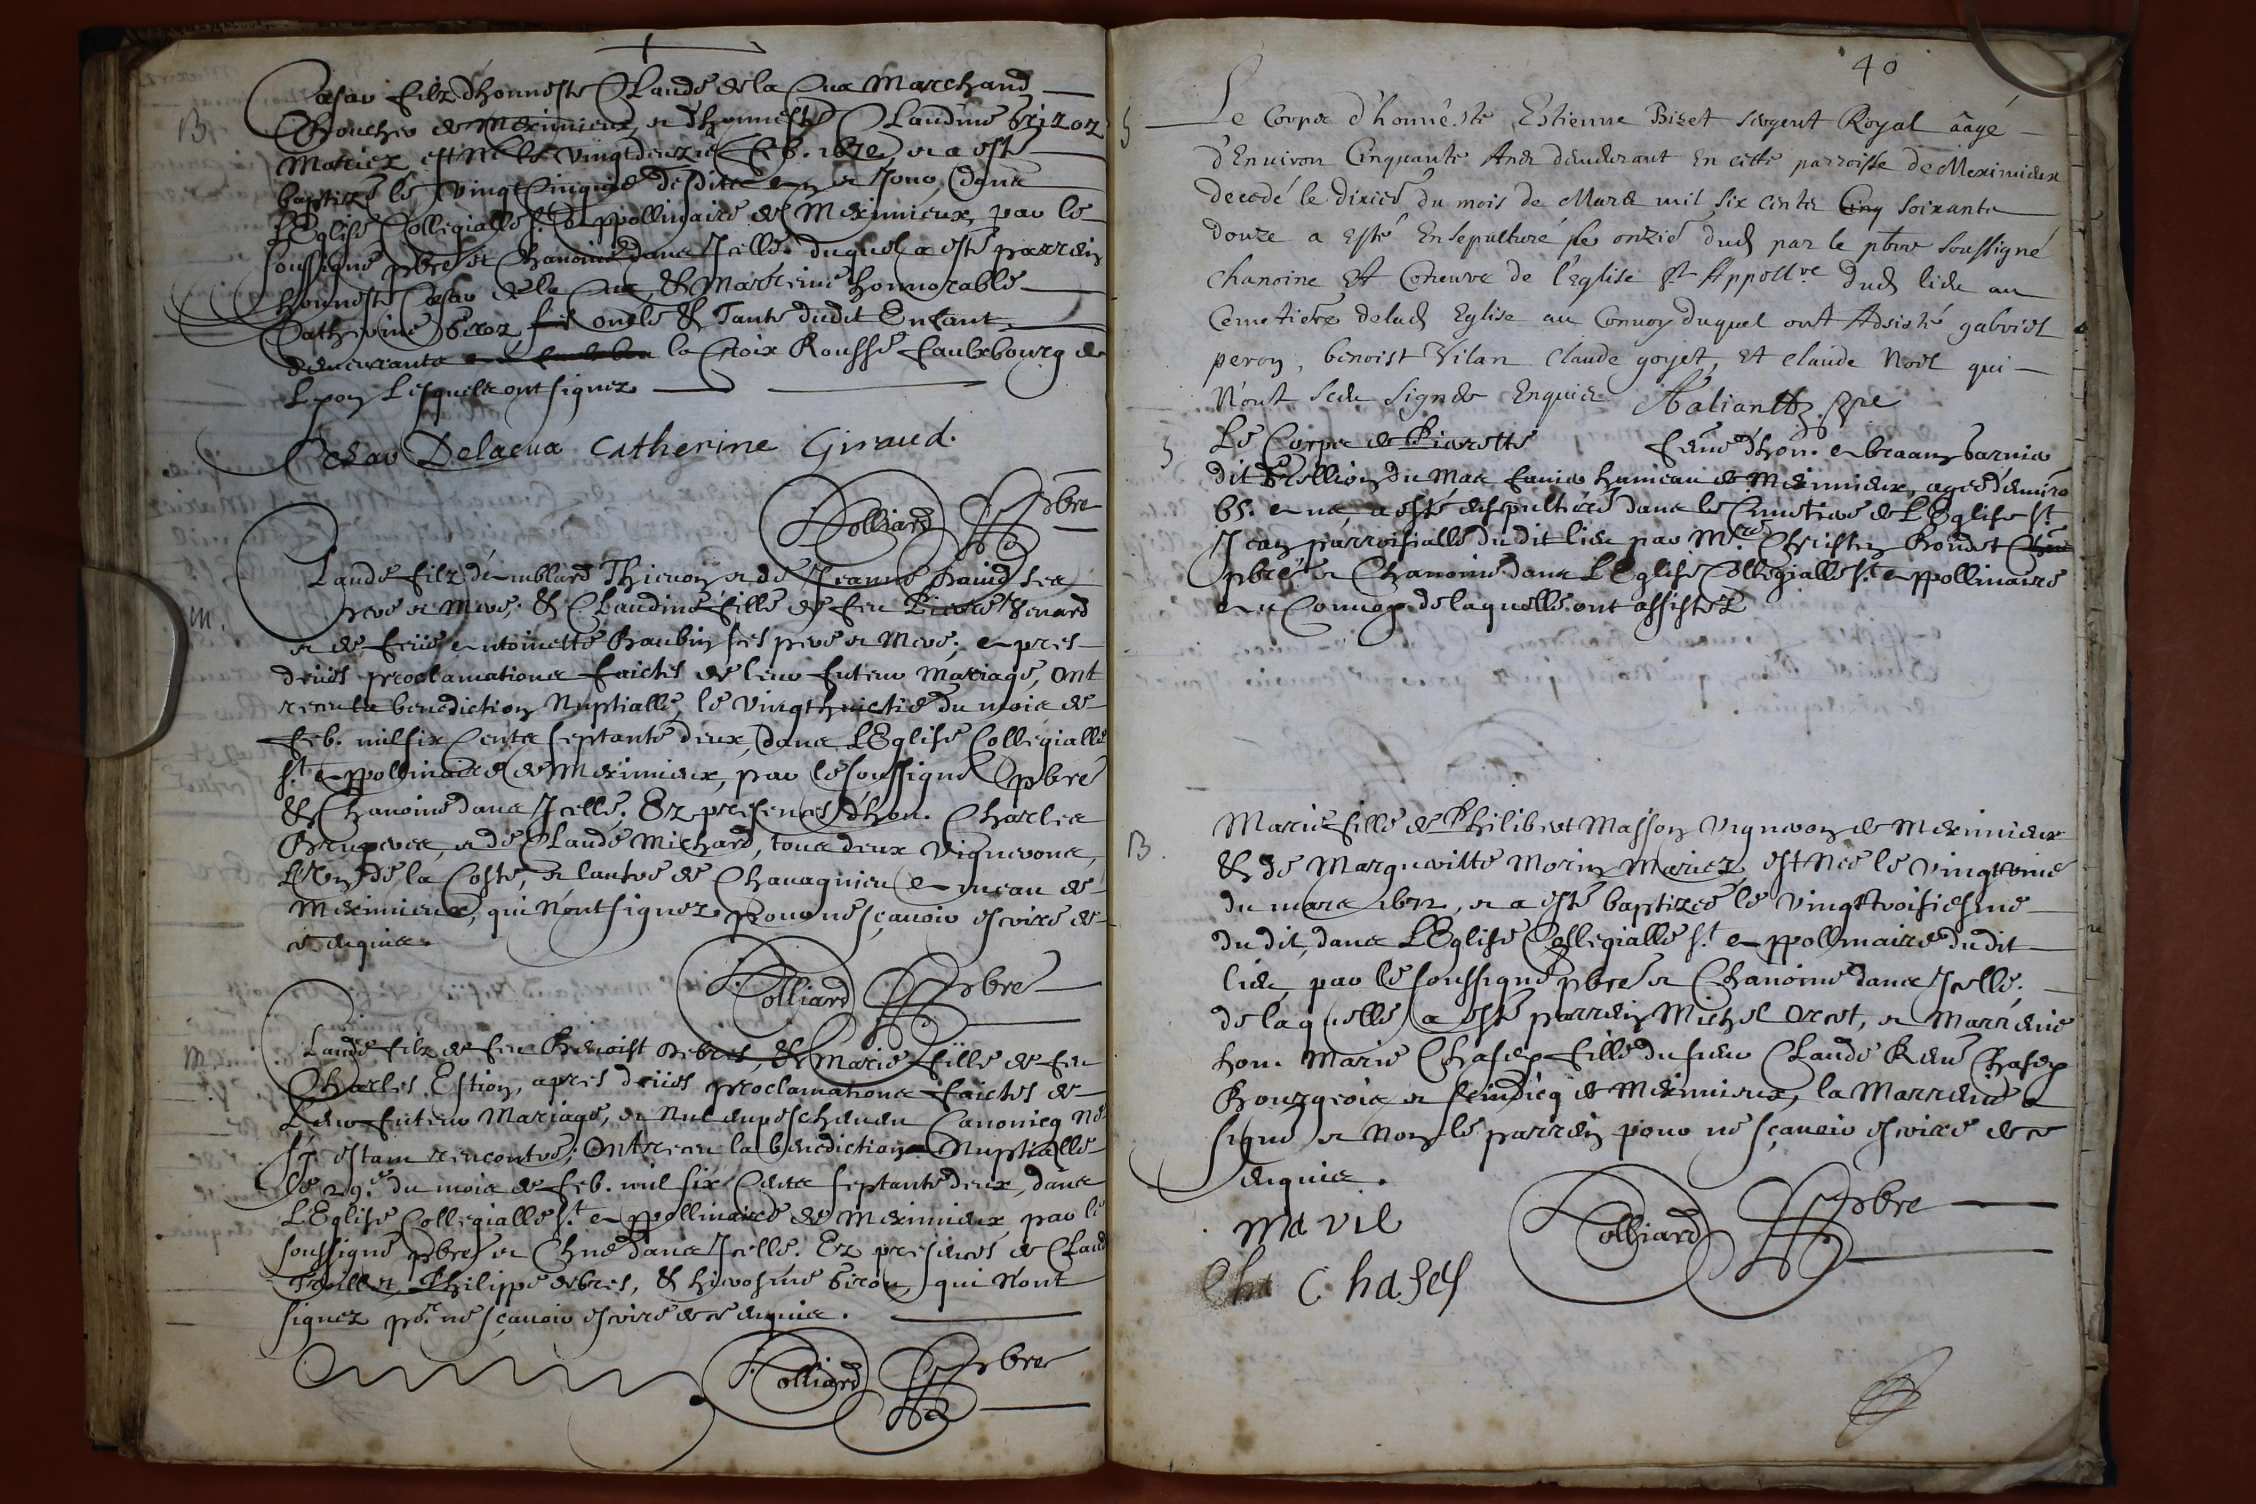 Cesar filz d'honneste Claude de la Cua Marchand
Boucher de Meximieux, et d'honneste Claudine
Mariez est né le vingtdeuxie Feb. 1672, et a esté
baptizé le vingtcinquie desdits an et jour, dans
L'Eglise Collegialle St. Appollinaire de Meximieux, par le
soussigné pbre et Chanoine dans Icelle. duquel a esté parrein
honneste Cesar de la Cua, & Marreine honnorable
Catherine Girod, oncle & Tante dudit Enfant
demeurants la Croix Rousse Faulxbourg de
Lyon Lesquels ont signez
Cesar Delacua Catherine Giraud.
Folliard pbre
B
Claude filz d'emblard Thievon et de Jeanne David ses
pere et Mere; & Claudine fille de feu Pierre Venard
et de feüe Antoinette Baubin ses pere et Mere; apres
deües proclamations faictes de leur futeur Mariage, ont
receu la benediction Nuptialle, le vingthuictie du mois de
Feb. mil six Cents septante deux, dans L'Eglise Collegialle
St. Appollinaire de Meximieux, par le soussigné pbre
& Chanoine dans Icelle. Ez presences d'hon. Charles
et de Claude Michard, tous deux vignerons,
L'un de la Coste, et lautre de Chavagnieu hameau de
Meximieux, qui n'ont signez pour ne sçavoir escrire de
ce enquis.
Folliard pbre
m.
Claude filz de feu Benoist Debres, & Marie fille de feu
Charles Estion, apres deües proclamations faictes de
Leur futeur Mariage, et nul empeschement Canonicq ne
s'y estant rencontré; ont receu la benediction Nuptialle
le 29.e du mois de Feb. mil six Cents septante deux, dans
L'Eglise Collegialle St. Appollinaire de Meximieux par le
soussigné pbre et Chne dans Icelle. Ez presences de Claude
Philippe debres, & hierosme Girou, qui n'ont
signez pr. ne sçavoir escrire de ce enquis.
Folliard pbre
M.
40
Le Corps d'honneste Estienne Bizet sergent Royal aâgé
d'Environ Cinquante Ans demeurant en cette parroisse de Meximieux
decedé le dixie du mois de Mars mil six cents Cinq soixante
douze a esté Ensepulturé le onzie dud par le pbre soussigné
chanoine Et Coneuvre de l'Eglise St Appolre dud lieu au
Cemetiere delad Eglise au Convoy duquel ont Assisté gabriel
peron, benoist Vilan Claude goyet, Et claude Noël qui
N'ont sceu signer Enquis
Le Corps de Pierrette feme d'hon.
dit du Mas hameau de Meximieux, agée d'enviro
65. ans, a esté ensepulturé dans le Cimetiere de L'Eglise St.
Jean parroisialle dudit lieu par Mre. Christin Bondet
pbre et Chanoine dans L'Eglise Collegialle St. Appollinaire
au Convoy de laquelle ont assistez
Marie fille de Philibert Masson Vigneron de Meximieux
& de Margueritte Morin Mariez, est née le vingt
du mars 1672, et a esté baptizée le vingttroisiesme
dudit, dans L'Eglise Collegialle St. Appollinaire dudit
lieu par le soussigné pbre et Chanoine dans Icelle.
de laquelle a esté parrein Michel Orset, et Marreine
hon. Marie Chasey fille du sieur Claude René Chasey
Bourgeois et scindicq de Meximieux, la Marreine a
signé et non le parrein pour ne sçavoir escrire de ce
enquis.
B.
Ma vie
Cha Chasey
Folliard pbre